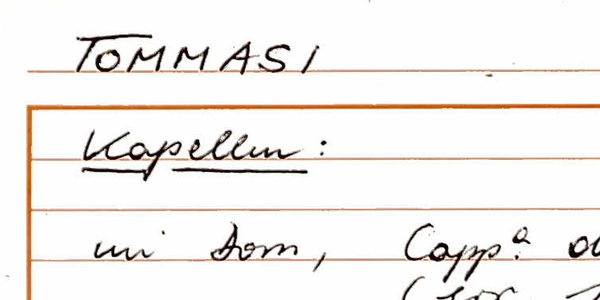 TOMMASI
Kapellen:
im Dom, Capp.a